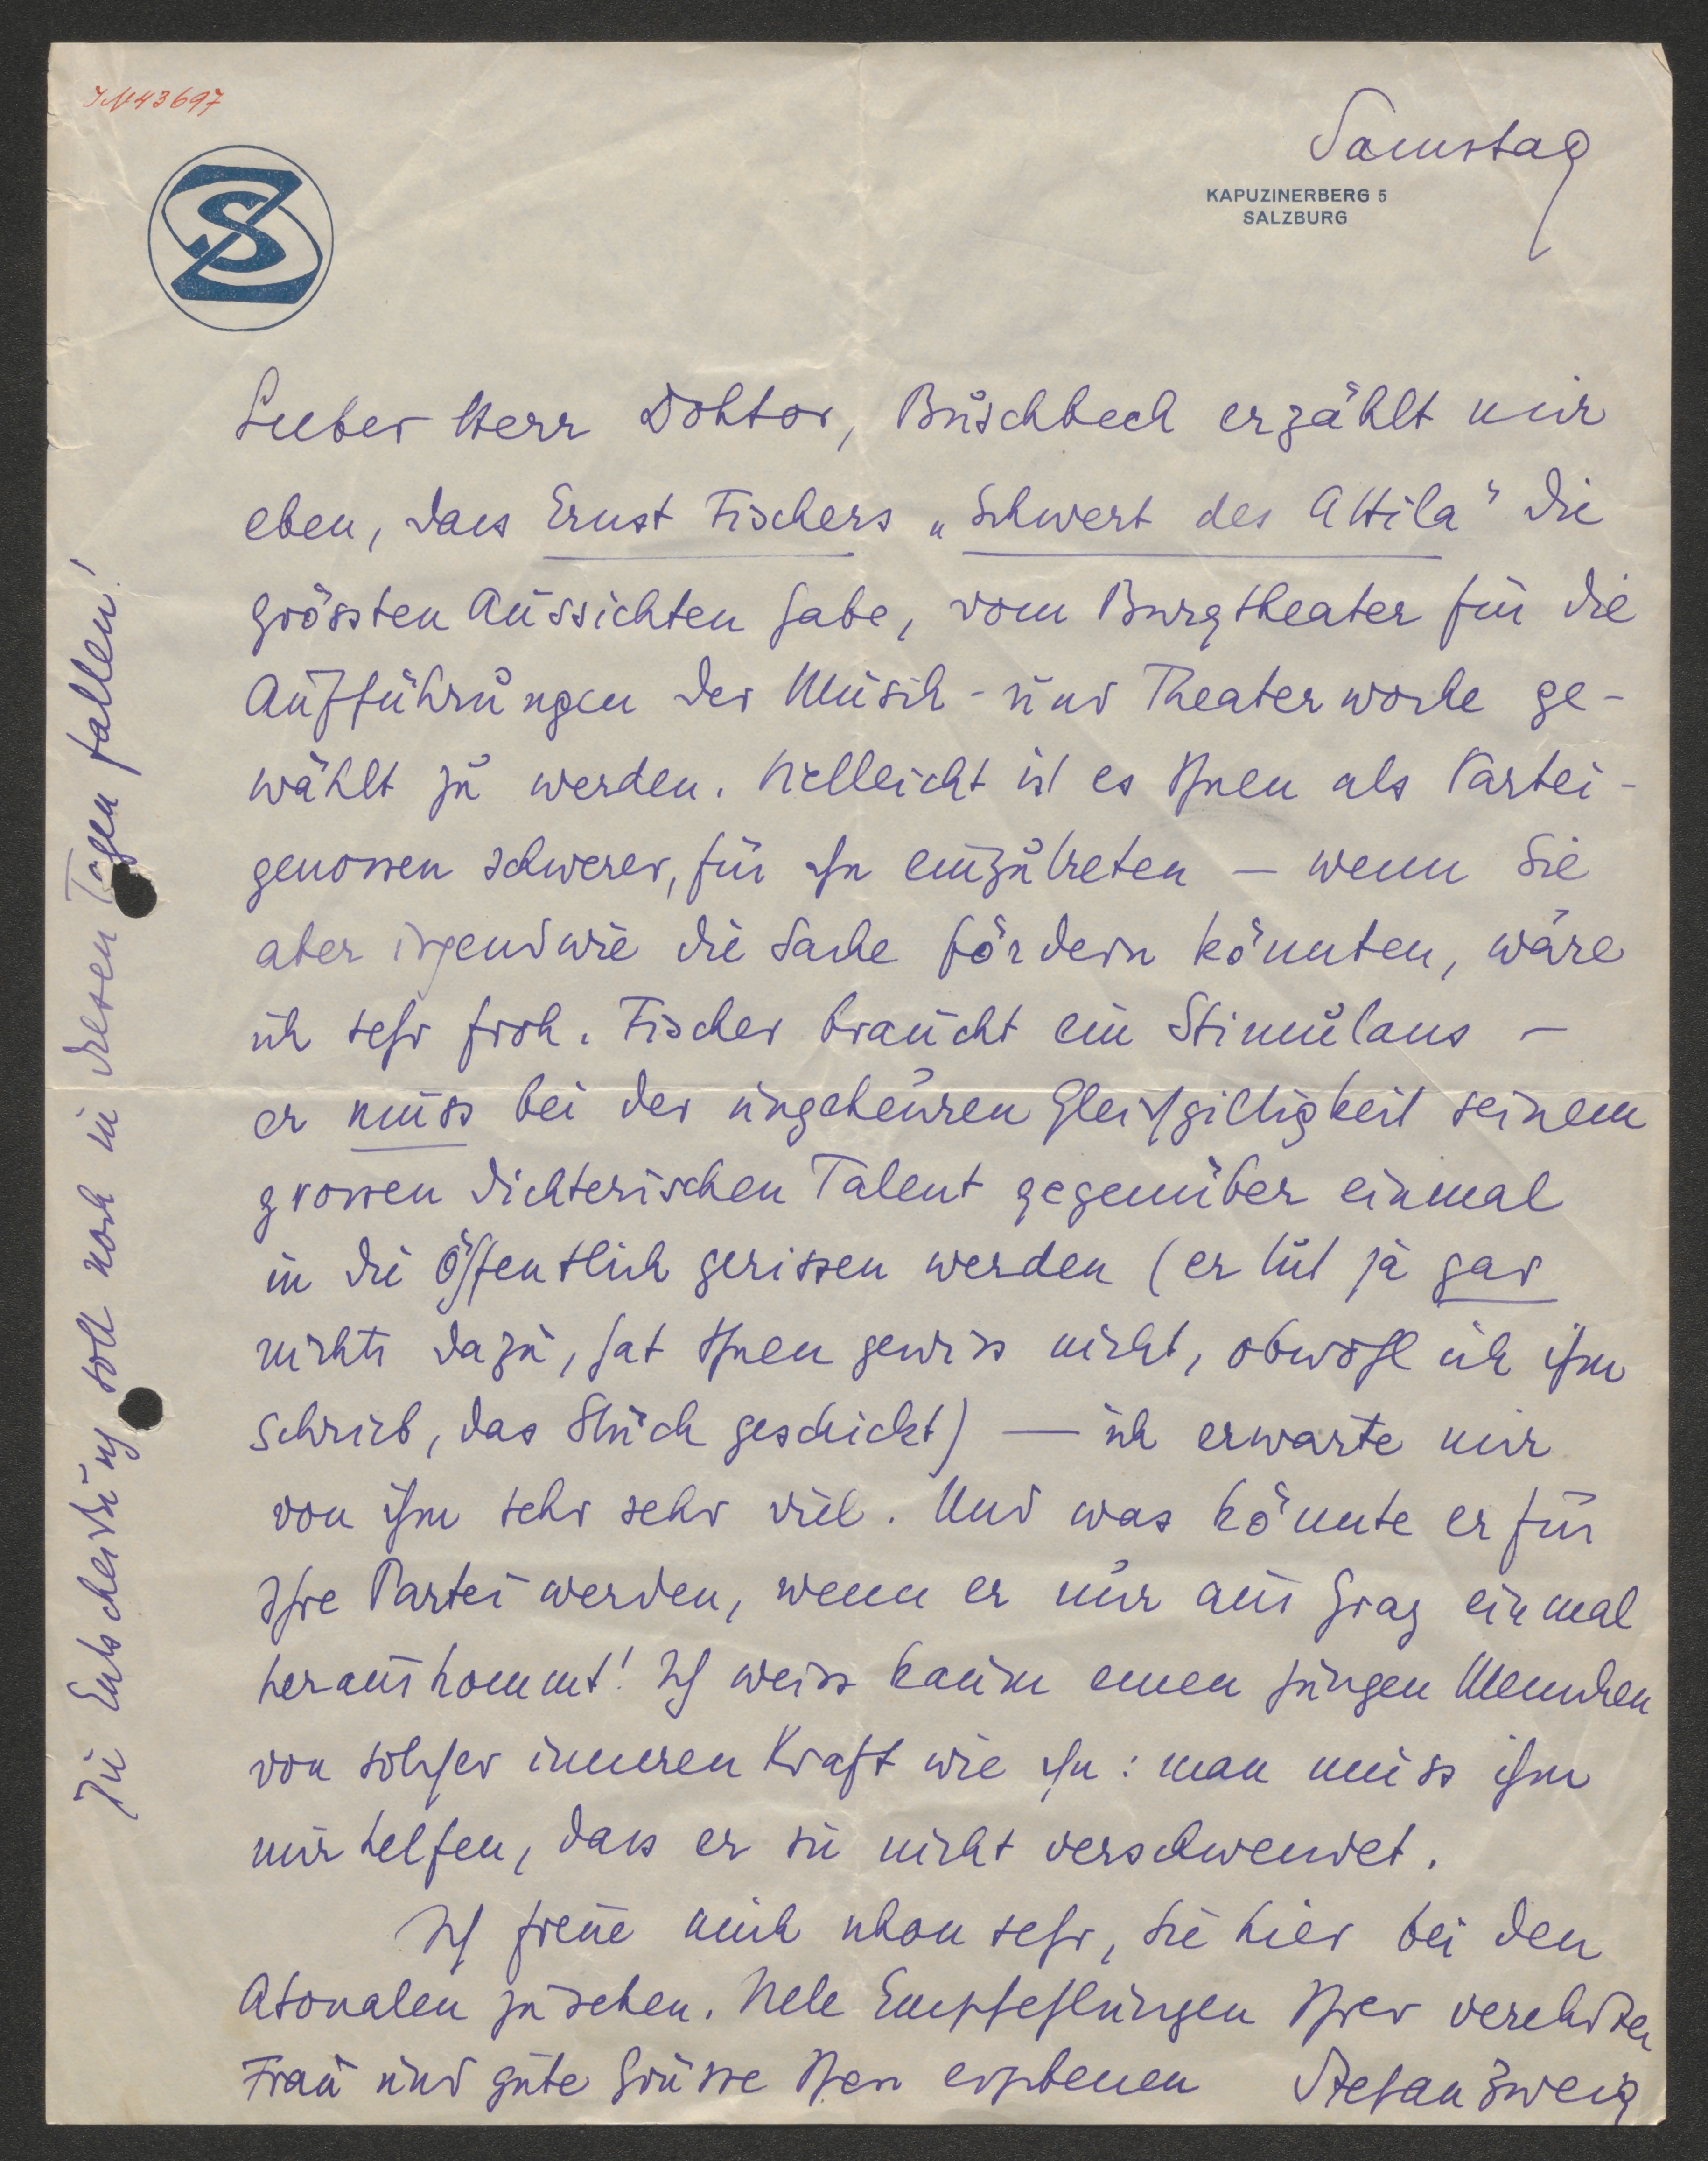 IN 43697
Samstag
SZ
KAPUZINERBERG 5
SALZBURG
Lieber Herr Doktor, Buschbeck erzählt mir
eben, dass Ernst Fischers „Schwert des Attila" die
grössten Aussichten habe, vom Burgtheater für die
Aufführungen der Musik- und Theaterwoche ge-
wählt zu werden. Vielleicht ist es Ihnen als Partei-
genossen schwerer, für ihn einzutreten — wenn Sie
aber irgendwie die Sache fördern könnten, wäre
ich sehr froh. Fischer braucht ein Stimulans —
er muss bei der ungeheuren Gleichgiltigkeit seinem
grossen dichterischen Talent gegenüber einmal
in die Öffentlich gerissen werden (er tut ja gar
nichts dazu, hat Ihnen gewiss nicht, obwohl ich ihm
schrieb, das Stück geschickt) — ich erwarte mir
von ihm sehr sehr viel. Und was könnte er für
Ihre Partei werden, wenn er nur aus Graz einmal
herauskommt! Ich weiss kaum einen jungen Menschen
von solcher inneren Kraft wie ihn: man muss ihm
nur helfen, dass er sie nicht verschwendet.
Ich freue mich schon sehr, Sie hier bei den
Atonalen zu sehen. Viele Empfehlungen Ihrer verehrten
Frau und gute Grüsse Ihres ergebenen Stefan Zweig
Die Entscheidung soll noch in diesen Tagen fallen!